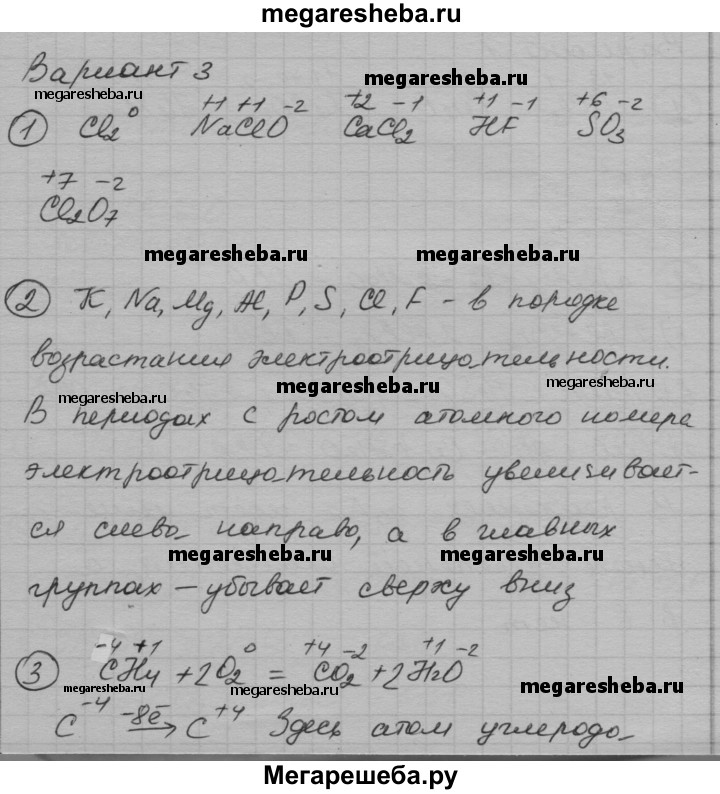 megaresheba.ru
Вариант 3
megaresheba.ru
megaresheba.ru
① Cl₂⁰ +1 +1 -2 NaClO +2 -1 CaCl₂ +1 -1 HF +6 -2 SO₃
+7 -2
Cl₂O₇
megaresheba.ru megaresheba.ru
② K, Na, Mg, Al, P, S, Cl, F - в порядке
возрастания электроотрицательности.
megaresheba.ru megaresheba.ru megaresheba.ru
В периодах с ростом атомного номера
электроотрицательность увеличивает-
ся слева направо, а в главных
megaresheba.ru megaresheba.ru
группах - убывает сверху вниз
-4 +1 0 +4 -2 +1 -2
③ CH₄ + 2O₂ = CO₂ + 2H₂O
megaresheba.ru megaresheba.ru megaresheba.ru
C⁻⁴ -8ē→ C⁺⁴ Здесь атом углерода
Мегарешеба.ру